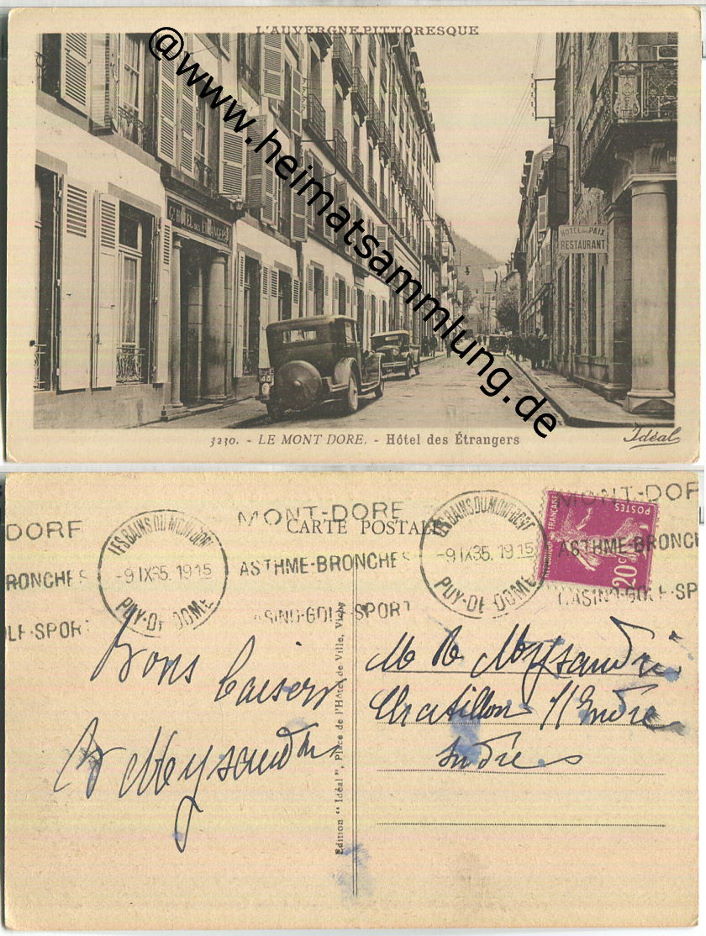 L'AUVERGNE PITTORESQUE
@www.heimatsammlung.de
Gd HÔTEL DES ÉTRANGERS
HOTEL DE LA PAIX
RESTAURANT
3230. - LE MONT DORE. - Hôtel des Étrangers
Idéal
DORE
BRONCHES
GOLF-SPORT
LES BAINS DU MONT-DORE
-9 IX 35. 19 15
PUY-DE DOME
MONT-DORE
ASTHME-BRONCHES
CASINO-GOLF-SPORT
CARTE POSTALE
LES BAINS DU MONT-DORE
-9 IX 35. 19 15
PUY-DE DOME
MONT-DORE
ASTHME-BRONCHES
CASINO-GOLF-SPORT
POSTES
20c
Bons baisers
Meysandri
Édition "Idéal", Place de l'Hôtel de Ville, Vichy
Meysandri
Chatillon s/Indre
Indre